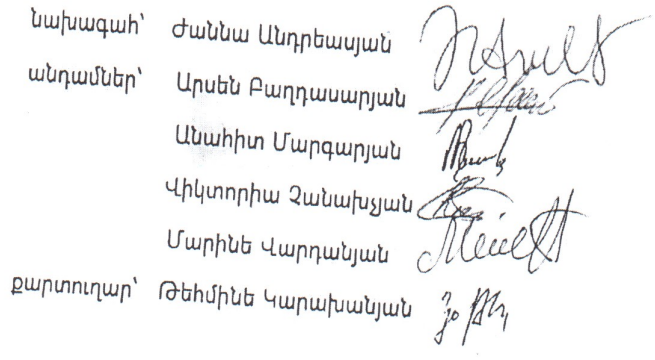 նախագահ՝ Ժաննա Անդրեասյան
անդամներ՝ Արսեն Բաղդասարյան
Անահիտ Մարգարյան
Վիկտորիա Չանախչյան
Մարինե Վարդանյան
քարտուղար՝ Թեհմինե Կարախանյան